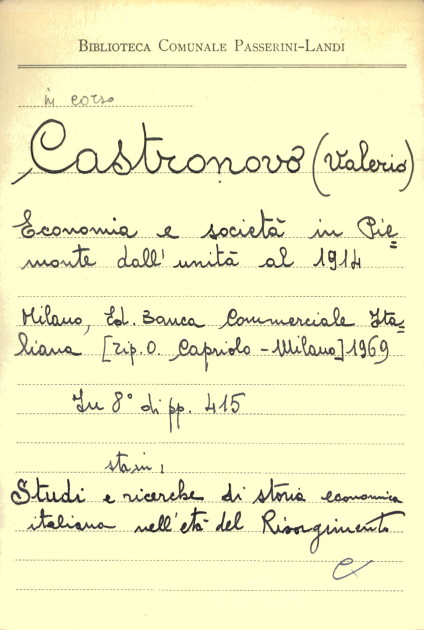 BIBLIOTECA COMUNALE PASSERINI-LANDI
in corso
Castronovo (Valerio)
Economia e società in Pie=
monte dall'unità al 1914
Milano, Ed. Banca Commerciale Ita=
liana [Tip. O. Capriolo - Milano] 1969
In 8° di pp. 415
sta in:
Studi e ricerche di storia economica
italiana nell'età del Risorgimento